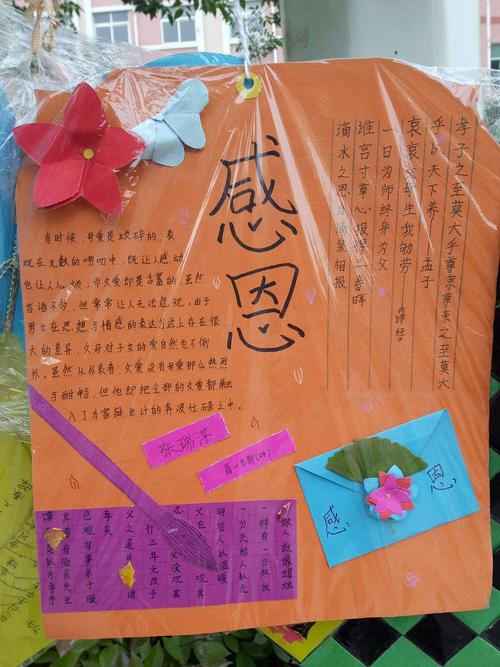 感恩
孝子之至莫大乎尊亲尊亲之至莫大
乎以天下养——孟子
哀哀父母生我劬劳
《诗经》
一日为师终身为父
谁言寸草心报得三春晖
滴水之恩当涌泉相报
有时候，母爱是琐碎的，表
现在无休的唠叨中，既让人感动
也让人心烦，而父爱却是含蓄的，虽然
言语不多，但常常让人无法忽视。由于
男女在思想与情感的表达方式上存在很
大的差异，父母对子女的爱自然也不例
外。虽然从外表看，父爱没有母爱那么热烈
与酣畅，但他却把全部的父爱都融
入了为家庭生计的奔波忙碌之中。
张瑞萍
高一5部(24)
感恩
做人就像蜡烛
一样有一分热
一分光给人以光
明给人以温暖
父在 观其
父没观其
行三年无改于
父之道
孝矣
色难有事弟子服
其劳有酒食先生